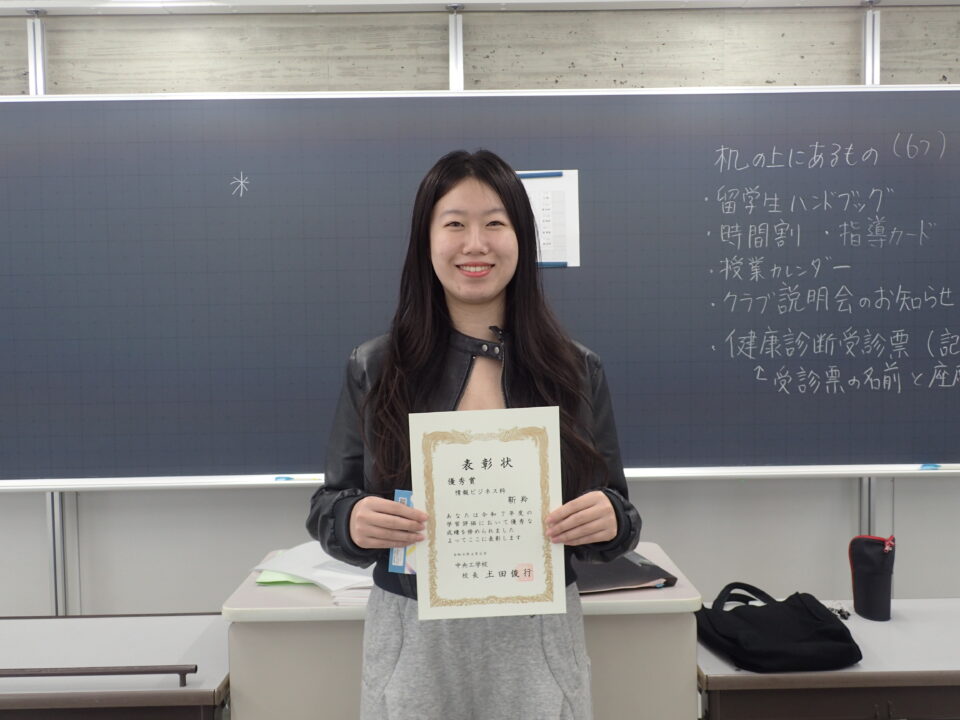 机の上にあるもの(6つ)
・留学生ハンドブック
・時間割 ・指導カード
・授業カレンダー
・クラブ説明会のお知らせ
・健康診断受診票(記
↑受診票の名前と座席
*
表彰状
優秀賞
情報ビジネス科
靳 羚
あなたは令和7年度の
学習評価において優秀な
成績を修められました
よってここに表彰します
中央工学校
校長 土田俊行